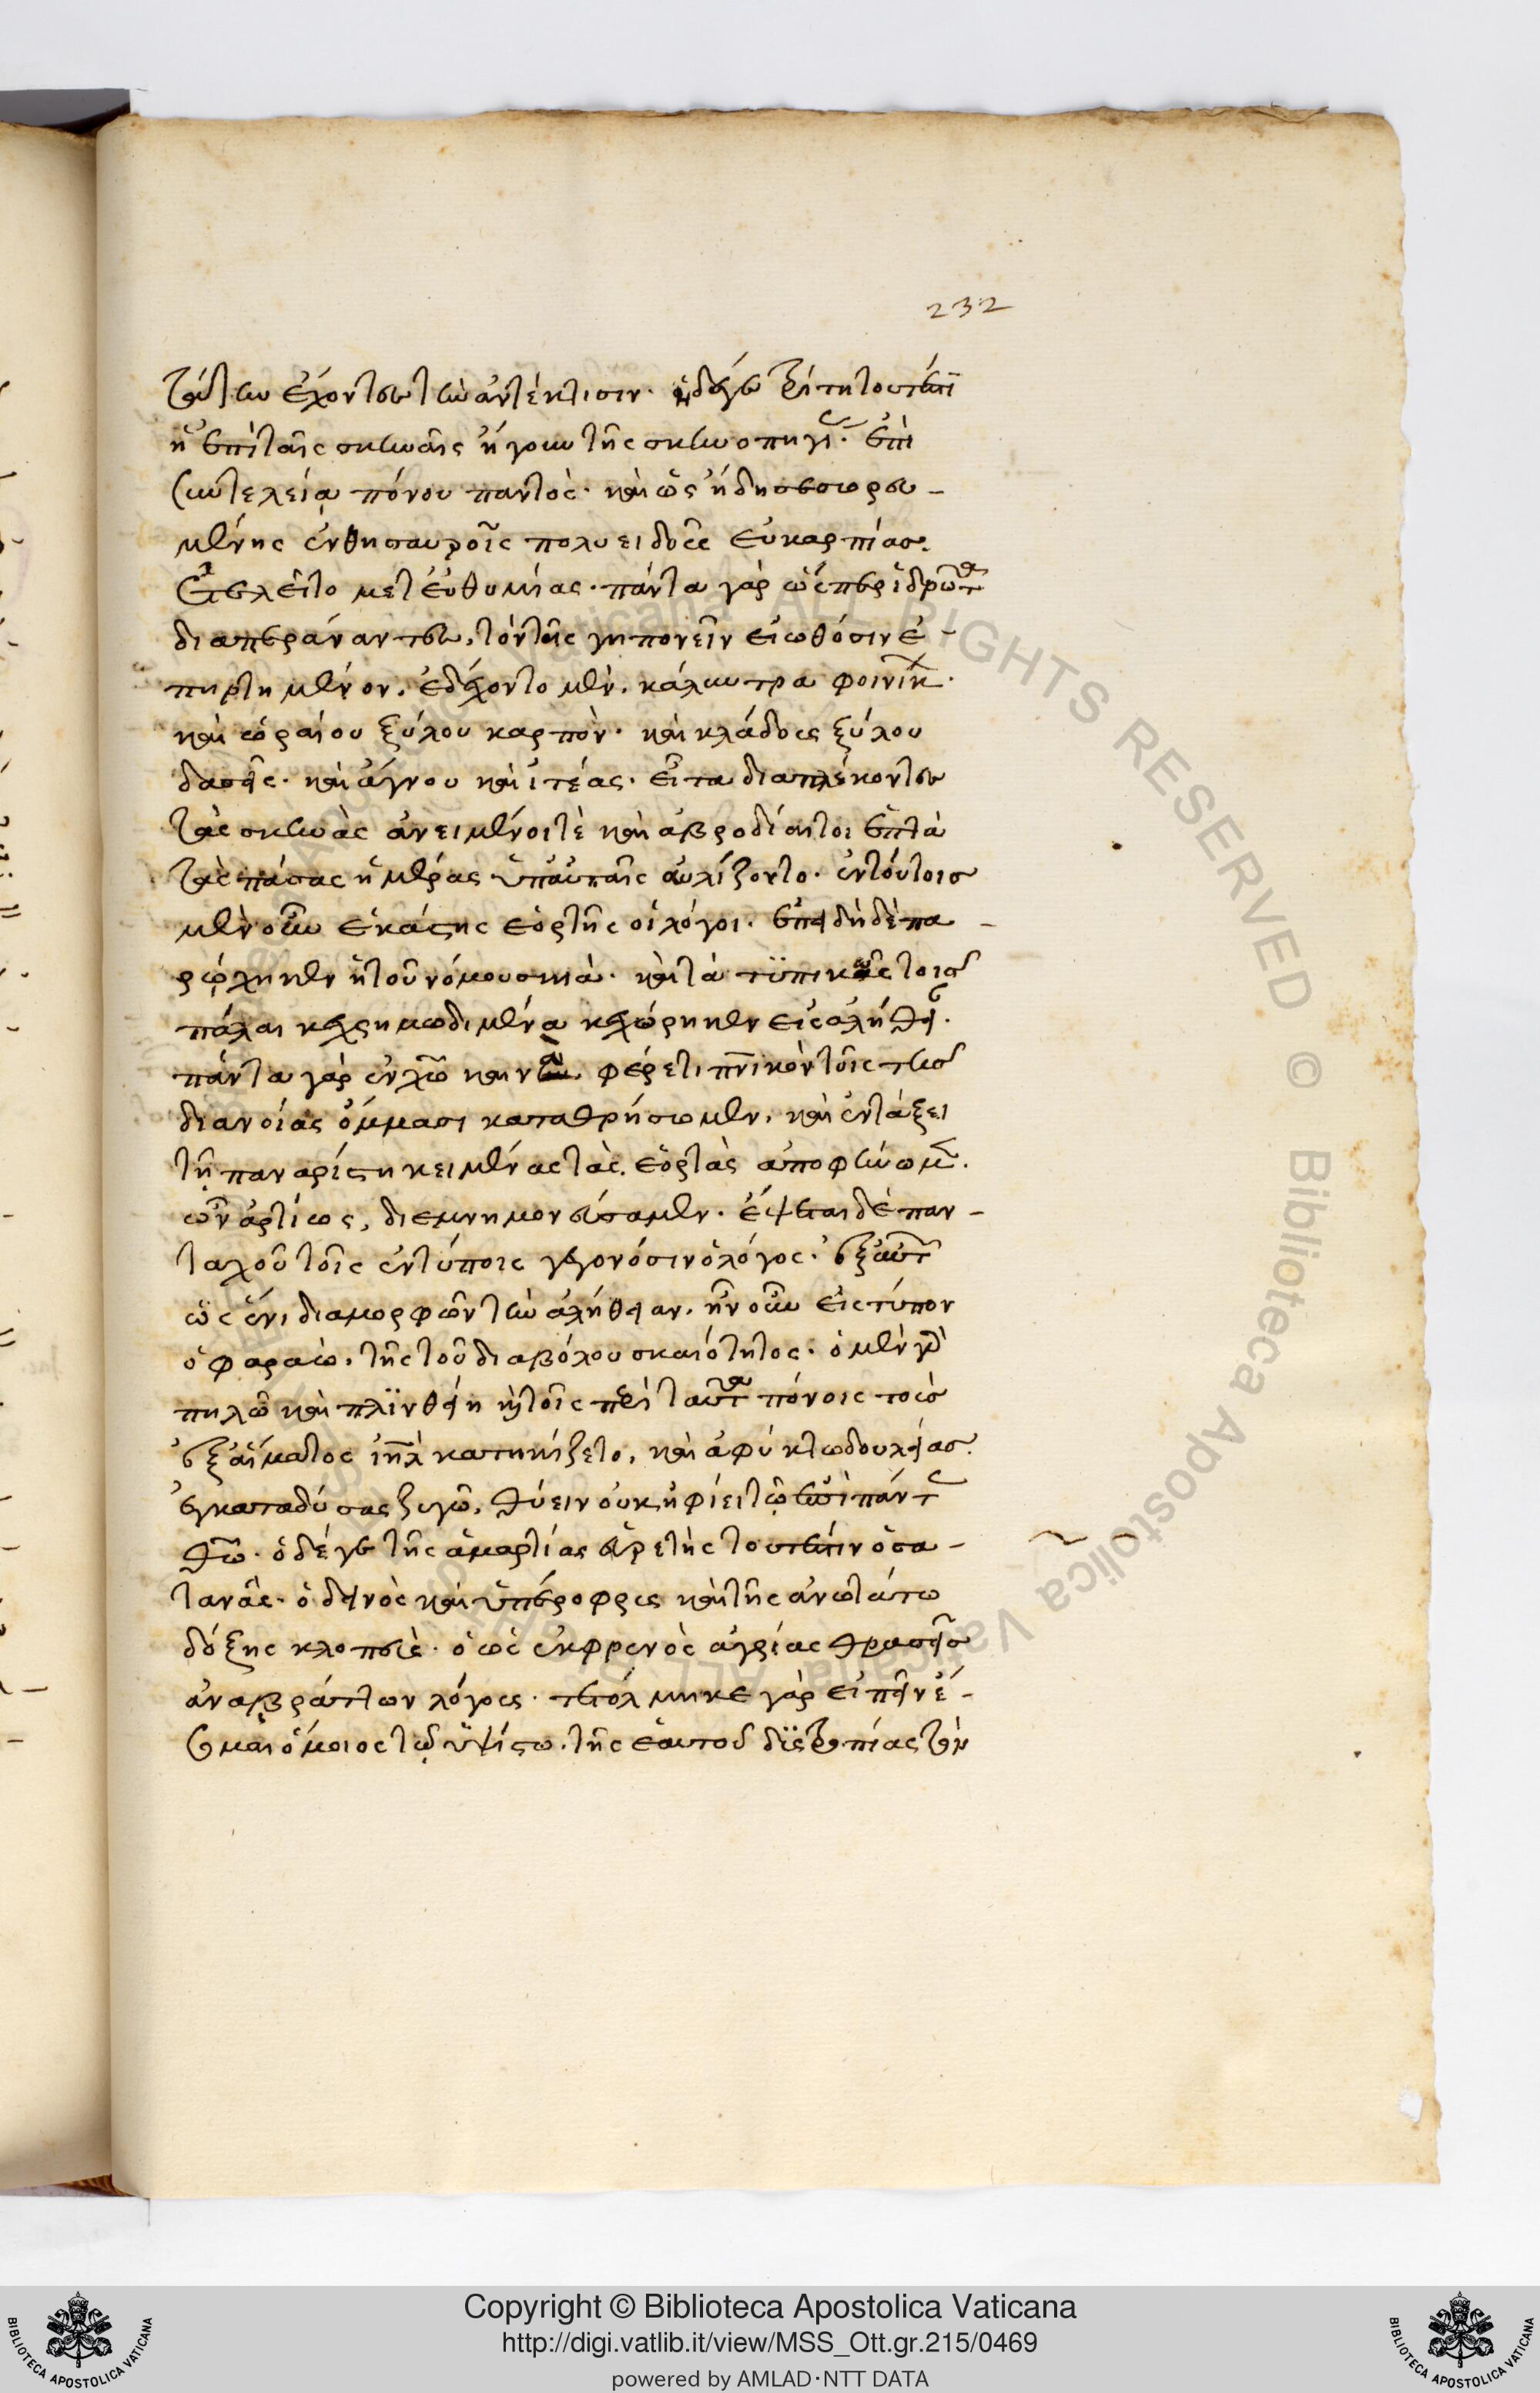 232
ταύτην ἐχόντων τὴν ἀντέκτισιν. ἡ δέ γε τρίτη τουτέστιν
ἡ ἐπὶ ταῖς σκηναῖς ἤγουν τῆς σκηνοπηγίας. ἐπὶ
συντελείᾳ πόνου παντὸς. καὶ ὡς ἤδη σεσωρευ-
μένης ἐν θησαυροῖς πολυειδοῦς εὐκαρπίας.
ἐτελεῖτο μετ εὐθυμίας. πάντα γὰρ ὥσπερ ἱδρῶτα
διαπεράναντες, τὸν τοῖς γηπονεῖν εἰωθόσιν ἐ-
πηρτημένον. ἐδέχοντο μὲν. κάλλυντρα φοινίκων.
καὶ ὡραίου ξύλου καρπὸν. καὶ κλάδους ξύλου
δασεῖς. καὶ ἄγνου καὶ ἰτέας. εἶτα διαπλέκοντες
τὰς σκηνὰς ἀνειμένοι τὲ καὶ ἁβροδίαιτοι ἑπτὰ
τὰς πάσας ἡμέρας ὑπ αὐταῖς αὐλίζοντο. ἐν τούτοις
μὲν οὖν ἑκάστης ἑορτῆς οἱ λόγοι. ἐπειδὴ δὲ πα-
ρῴχηκεν ἡ τοῦ νόμου σκιὰ. καὶ τὰ τυπικῶς τοῖς
πάλαι κεχρημωδημένα κεχώρηκεν εἰς ἀλήθειαν.
πάντα γὰρ ἐν χριστῷ καινὰ. φέρε τι πνευματικὸν τοῖς τῆς
διανοίας ὄμμασι καταθρήσωμεν, καὶ ἐν τάξει
τῇ παναρίστῃ κειμένας τὰς ἑορτὰς ἀποφήνωμεν.
ὧν ἀρτίως, διεμνημονεύσαμεν. ἕψεται δὲ παν-
ταχοῦ τοῖς ἐν τύποις γεγονόσιν ὁ λόγος. ἐξ αὐτῶν
ὡς ἔνι διαμορφῶν τὴν ἀλήθειαν. ἦν οὖν εἰς τύπον
ὁ φαραὼ. τῆς τοῦ διαβόλου σκαιότητος. ὁ μὲν γὰρ
πηλῷ καὶ πλινθείᾳ καὶ τοῖς περὶ ταῦτα πόνοις τοὺς
ἐξ αἵματος ἰσραὴλ κατηκίζετο, καὶ ἀφύκτῳ δουλείας
ἐγκαταδύσας ζυγῷ, θύειν οὐκ ἠφίει τῷ ἐπὶ πάντας
θεῷ. ὁ δέ γε τῆς ἁμαρτίας εὑρετὴς τουτέστιν ὁ σα-
τανᾶς. ὁ δεινὸς καὶ ὑπέροφρυς καὶ τῆς ἀνωτάτω
δόξης κλοπεὺς. ὁ ὡς ἐκ φρενὸς ἀγρίας θρασεῖς
ἀναβράττων λόγους. τετόλμηκε γὰρ εἰπεῖν ἔ-
σομαι ὅμοιος τῷ ὑψίστῳ. τῆς ἑαυτοῦ δυστροπίας τὸν
Copyright © Biblioteca Apostolica Vaticana
http://digi.vatlib.it/view/MSS_Ott.gr.215/0469
powered by AMLAD·NTT DATA